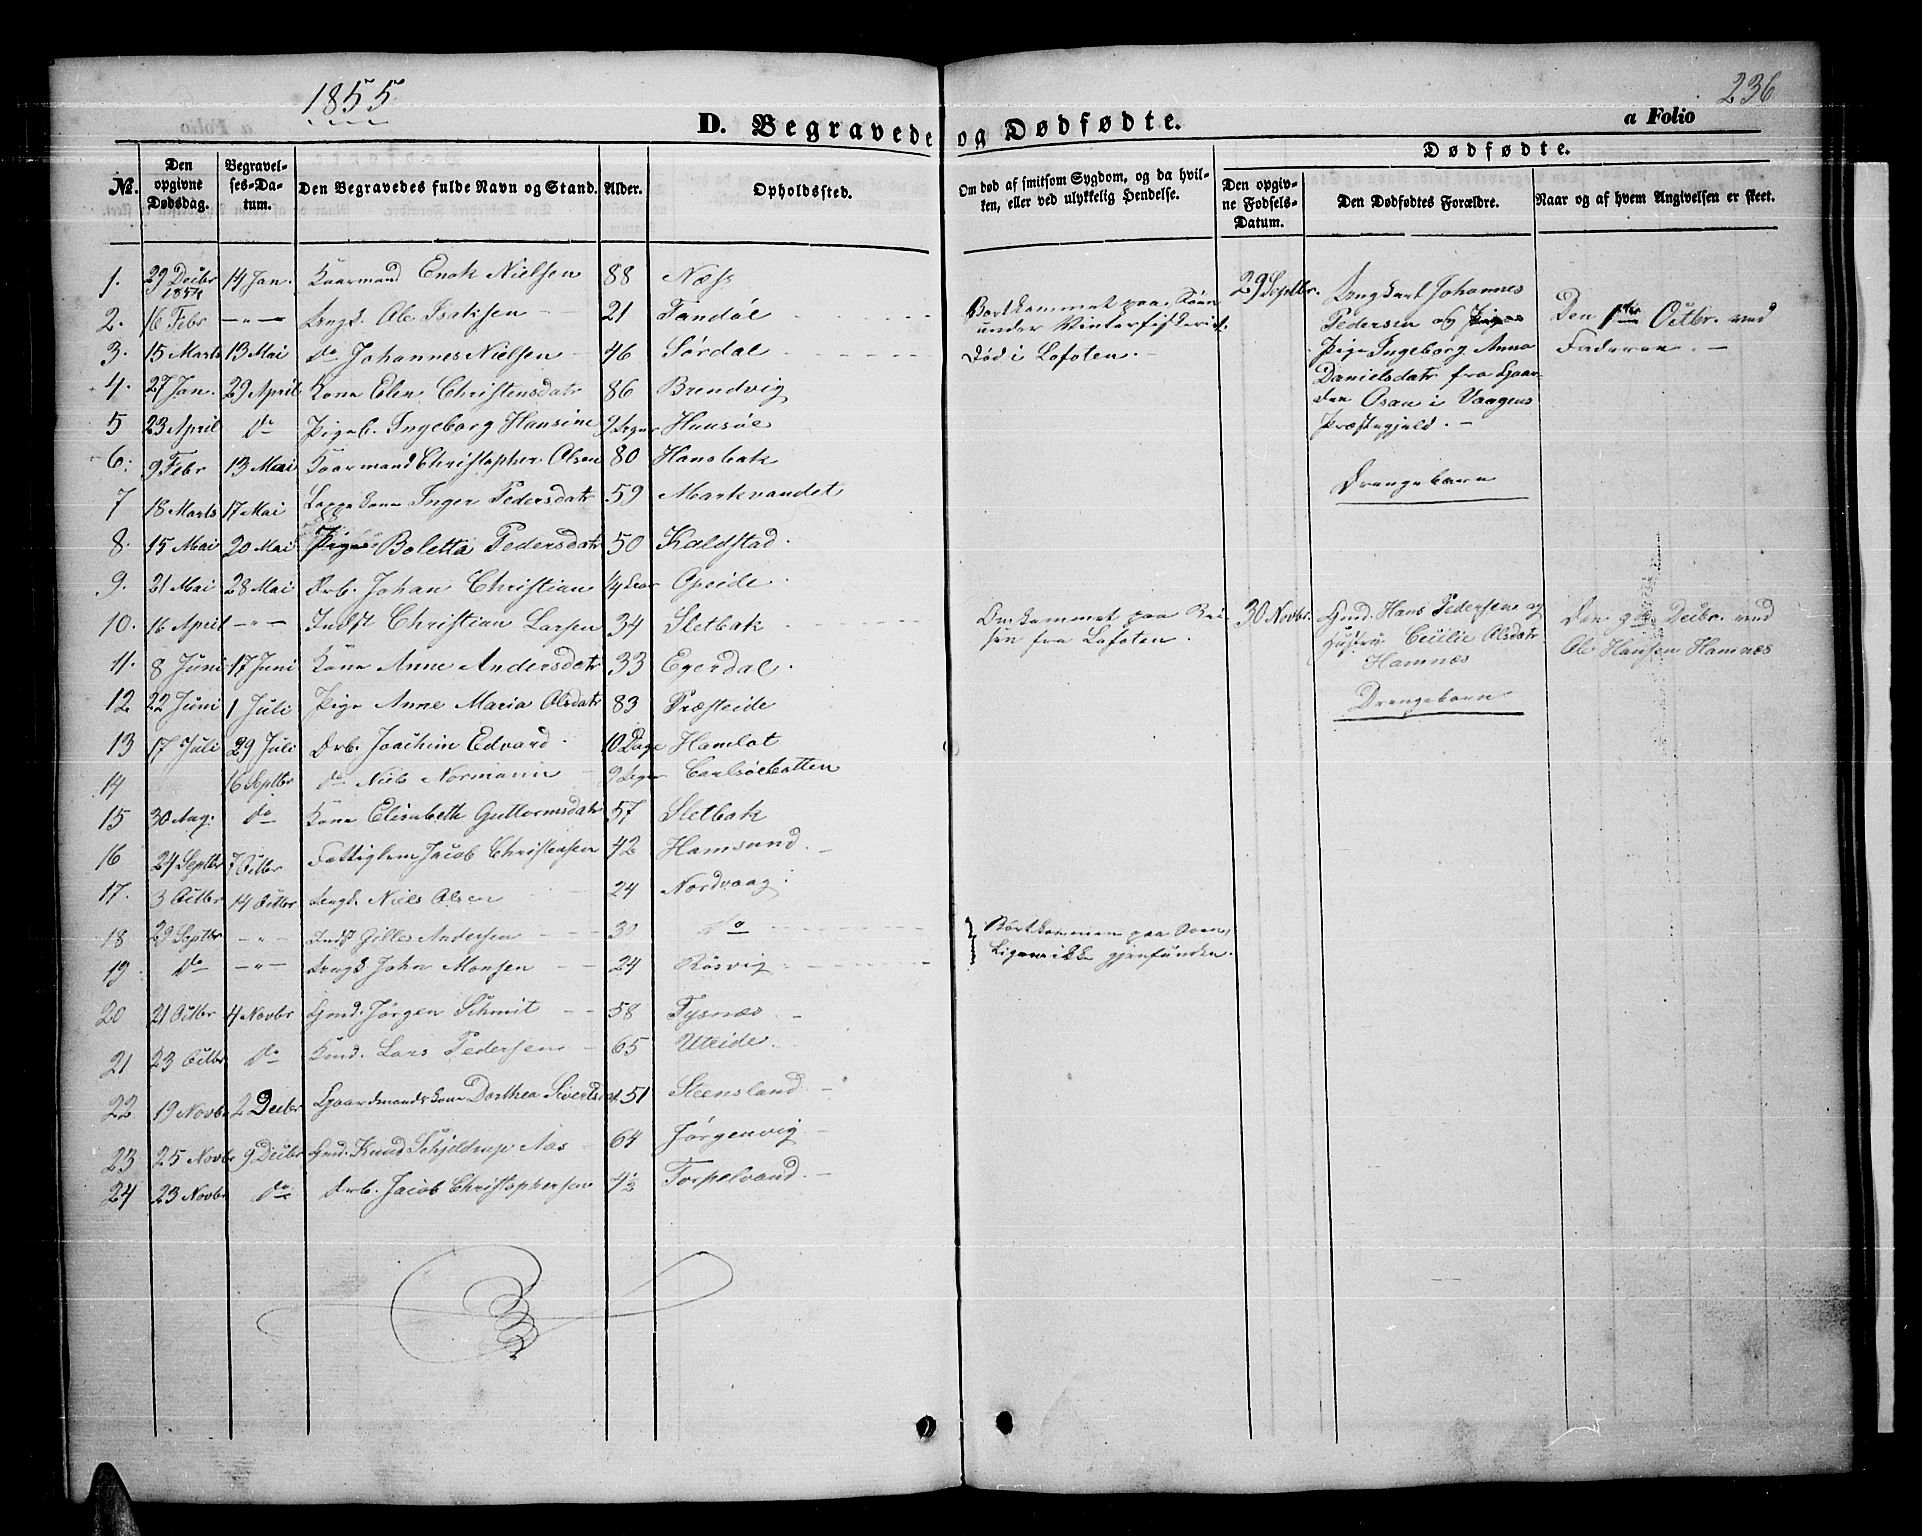 1855
236
D. Begravede og Dødfødte.
a Folio
Dødfødte.
No. Den opgivne Dødsdag. Begravelses-Datum. Den Begravedes fulde Navn og Stand. Alder. Opholdssted. Om død af smitsom Sygdom, og da hvilken, eller ved ulykkelig Hendelse. Den opgivne Fødsels-Datum. Den Dødfødtes Forældre. Naar og af hvem Angivelsen er skeet.
1. 29 Decbr 1854 14 Jan. Kaarmand Enok Nielsen 88 Næss
2. 16 Febr -"- Ungk. Ole Isaksen 21 Tandøl
3. 15 Marts 13 Mai do Johannes Nielsen 46 Sørdal
4. 27 Jan. 29 April Kone Elen Christensdatr 86 Brendvig
5 23 April do Pigeb. Ingeborg Hansine 9 Uger
6. 9 Febr 13 Mai Kaarmand Christopher Olsen 80 Hansbak
7 18 Marts 17 Mai Lappekone Inger Pedersdatr 59 Markvandet
8. 15 Mai 20 Mai Pige Boletta Pedersdatr 50 Kaldstad
9. 21 Mai 28 Mai Drb. Johan Christian Opeide
10. 16 April -"- Indst Christian Larsen 34 Sletbak
11. 8 Juni 17 Juni Kone Anne Andersdatr 33 Egerdal
12 22 Juni 1 Juli Pige Anne Maria Olsdatr 83 Presteide
13 17 Juli 29 Juli Drb. Joachim Edvard 10 Dage Hamlot
14 16 Septbr do Niels Normann 9 Uger Carlsøebotten
15 30 Aug. do Kone Elisabeth Guttormsdatr 57 Sletbak
16 24 Septbr 7 Octbr Fattiglem Jacob Christensen 42 Hamsund
17. 3 Octbr 14 Octbr Ungk. Niels Olsen 24 Nordvaag
18 29 Septbr -"- Indst Gilles Andersen 30 do
19 do -"- Ungk John Monsen 24 Røsvig
20 21 Octbr 4 Novbr Gmd. Jørgen Schmit 58 Tysnæs
21 23 Octbr do Kmd. Lars Pedersen 65 Uteide
22 19 Novbr 2 Decbr Gaardmandskone Dorthea Sivertsdat 51 Steensland
23 25 Novbr 9 Decbr Gmd. Knud Schjeldrup Aas 64 Jørgenvig
24 23 Novbr do Drb. Jacob Christophersen 4½ Torpelvand
Bortkommet paa Søen
under Vinterfiskeriet.
Død i Lofoten.
Omkommet paa Reisen
fra Lofoten.
Bortkommen paa Søen,
Ligene ikke gjenfunden.
29 Septbr.
Ungkarl Johannes
Pedersen og Pige
Pige Ingeborg Anna
Danielsdatr fra Gaarden
Osan i Vaagens
Præstegjeld.
Drengebarn
Den 1ste Octbr. ved
Faderen
30 Novbr.
Gmd. Hans Pedersen og
Hustru Cecilie Olsdatr
Hamnæs
Drengebarn
Den 9de Decbr. ved
Ole Hansen Hamnæs